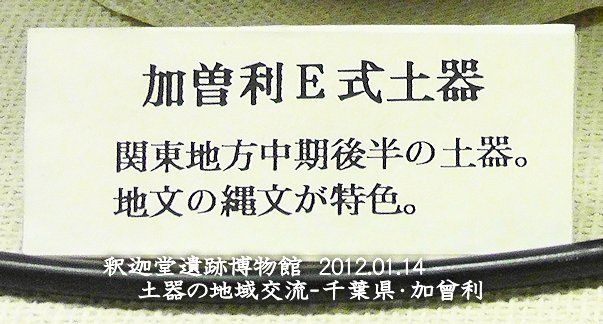 加曽利E式土器
関東地方中期後半の土器。
地文の縄文が特色。
釈迦堂遺跡博物館 2012.01.14
土器の地域交流-千葉県·加曾利